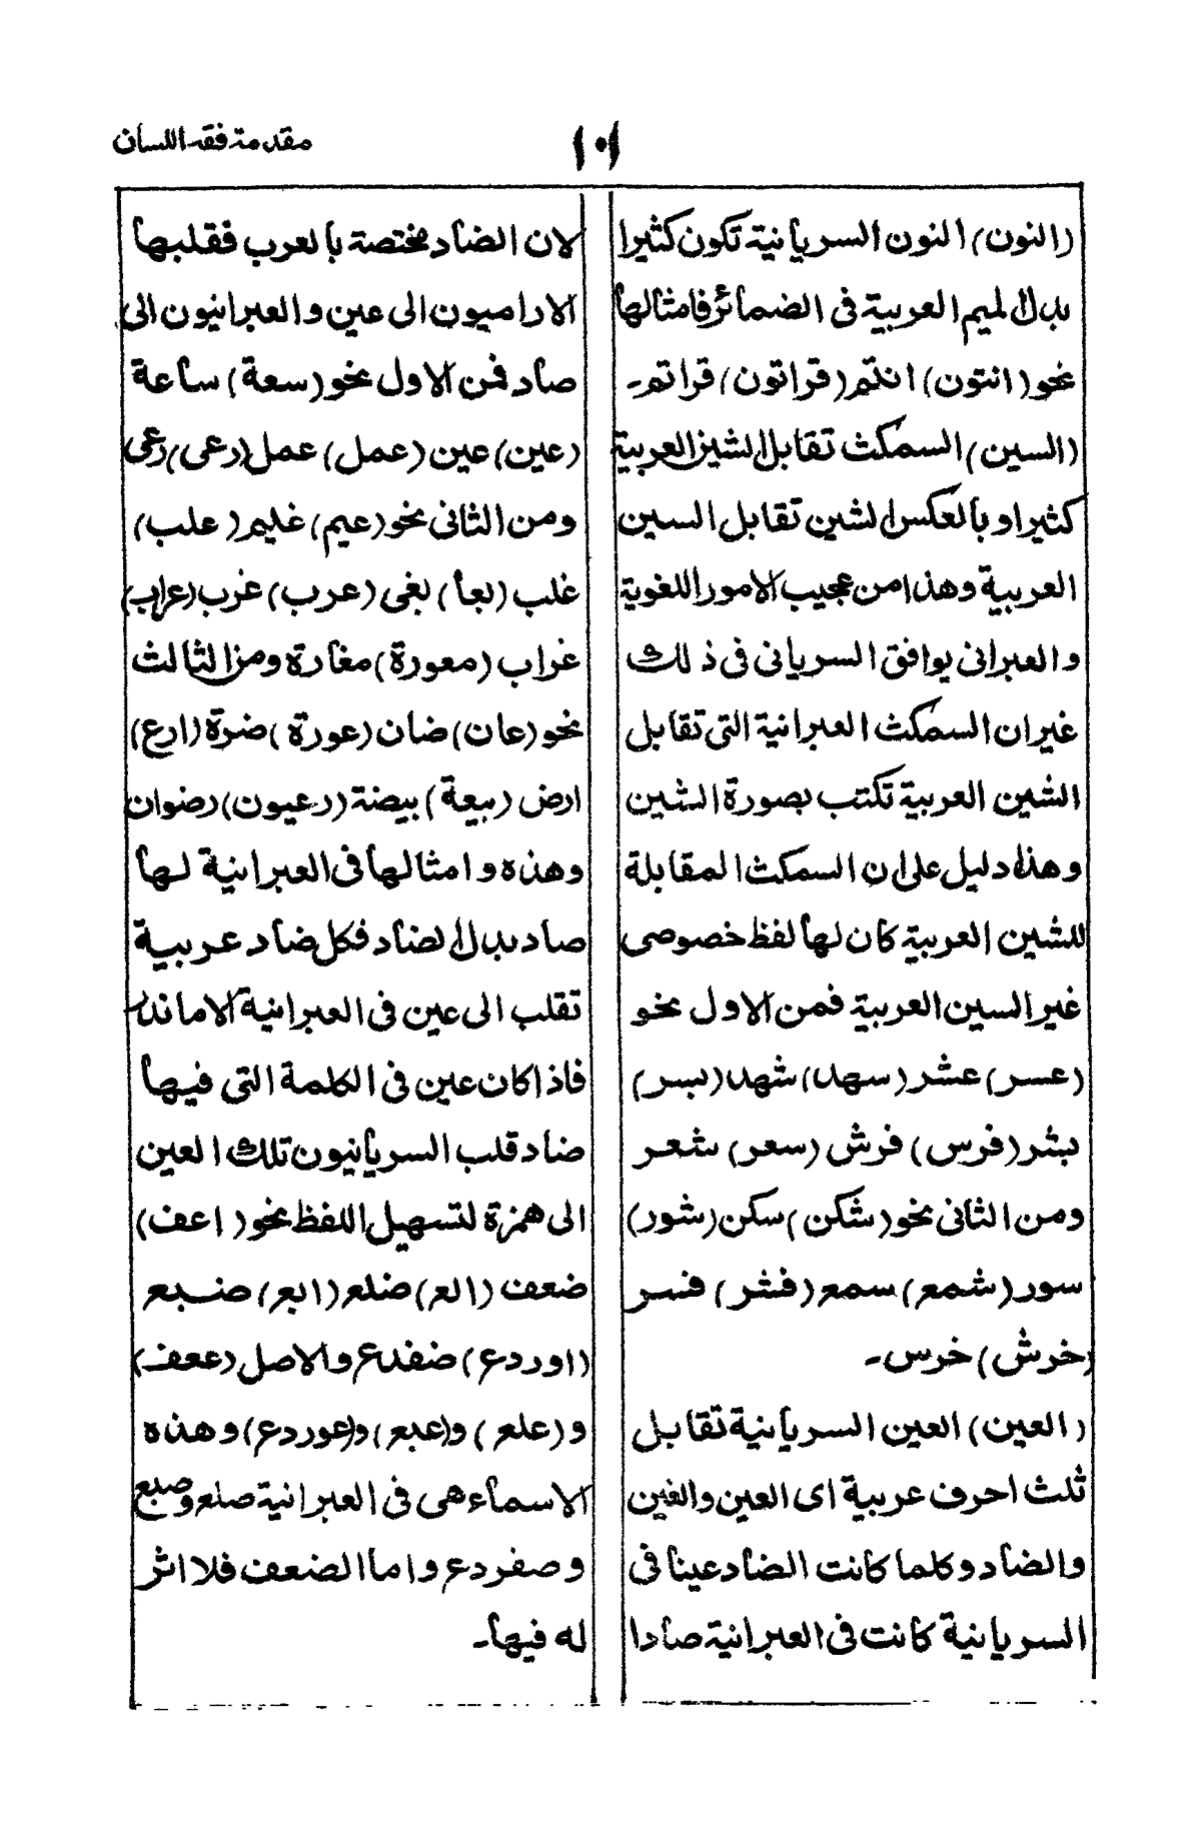 مقدمة فقه اللسان
١٠١
(النون) النون السريانية تكون كثيرا
بدل الميم العربية فى الضمائر فامثالها
نحو (انتون) انتم (قراتون) قراتم۔
(السين) السمكث تقابل الشين العربية
كثيرا وبالعكس الشين تقابل السين
العربية وهذا من عجيب الامور اللغوية
والعبرانى يوافق السريانى فى ذلك
غير ان السمكث العبرانية التى تقابل
الشين العربية تكتب بصورة الشين
وهذا دليل على ان السمكث المقابلة
للشين العربية كان لها لفظ خصوصى
غير السين العربية فمن الاول نحو
(عسر) عشر (سهد) شهد (بسر)
بشر (فرس) فرش (سعر) شعر
ومن الثانى نحو (شكن) سكن (شور)
سور (شمع) سمع (فشر) فسر
(خرش) خرس۔
(العين) العين السريانية تقابل
ثلث احرف عربية اى العين والغين
والضاد وكلما كانت الضاد عينا فى
السريانية كانت فى العبرانية صادا
لان الضاد مختصة بالعرب فقلبها
الاراميون الى عين والعبرانيون الى
صاد فمن الاول نحو (سعة) ساعة
(عين) عين (عمل) عمل (رعى) رعى
ومن الثانى نحو (عيم) غليم (علب)
غلب (بعا) بغى (عرب) غرب (عراب)
غراب (معورة) مغارة ومن الثالث
نحو (عان) ضان (عورة) ضرة (ارع)
ارض (بيعة) بيضة (رعيون) رضوان
وهذه وامثالها فى العبرانية لها
صاد بدل الضاد فكل ضاد عربية
تقلب الى عين فى العبرانية الا ما ندر
فاذا كان عين فى الكلمة التى فيها
ضاد قلب السريانيون تلك العين
الى همزة لتسهيل اللفظ نحو (اعف)
ضعف (الع) ضلع (ابع) ضبع
(اوردع) ضفدع والاصل (ععف)
و (علع) و (عبع) و (عوردع) وهذه
الاسماء هى فى العبرانية صلع وصبع
وصفردع واما الضعف فلا اثر
له فيها۔